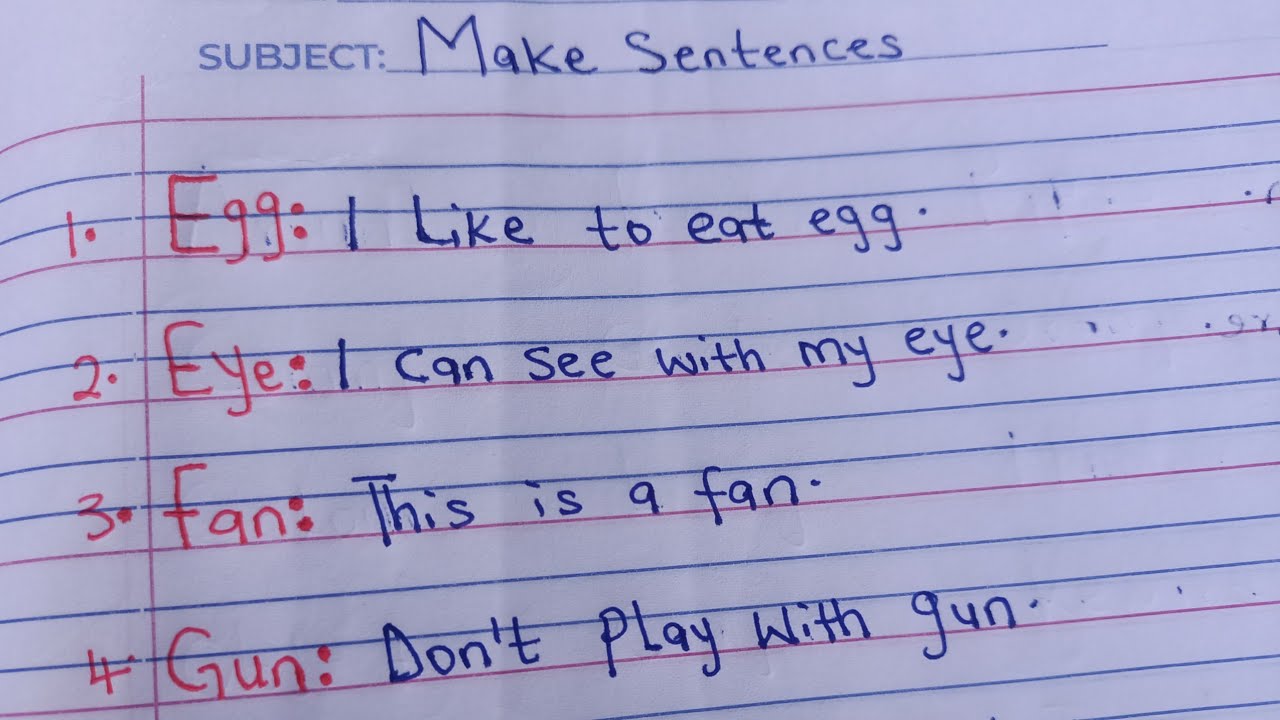 SUBJECT: Make Sentences
1. Egg: I Like to eat egg.
2. Eye: I can see with my eye.
3. Fan: This is a fan.
4. Gun: Don't Play with gun.